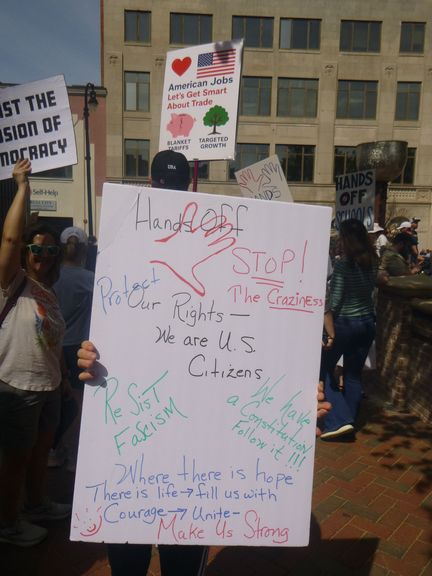 American Jobs
Let's Get Smart
About Trade
BLANKET
TARIFFS
TARGETED
GROWTH
USA
ST THE
SION OF
MOCRACY
Self-Help
HANDS
OFF
SCHOOLS
Hands Off
STOP!
The Craziness
Protect
Our Rights —
We are U.S.
Citizens
ReSist
Fascism
We have
a Constitution
Follow it!!!
Where there is hope
There is life → fill us with
Courage → Unite -
Make Us Strong